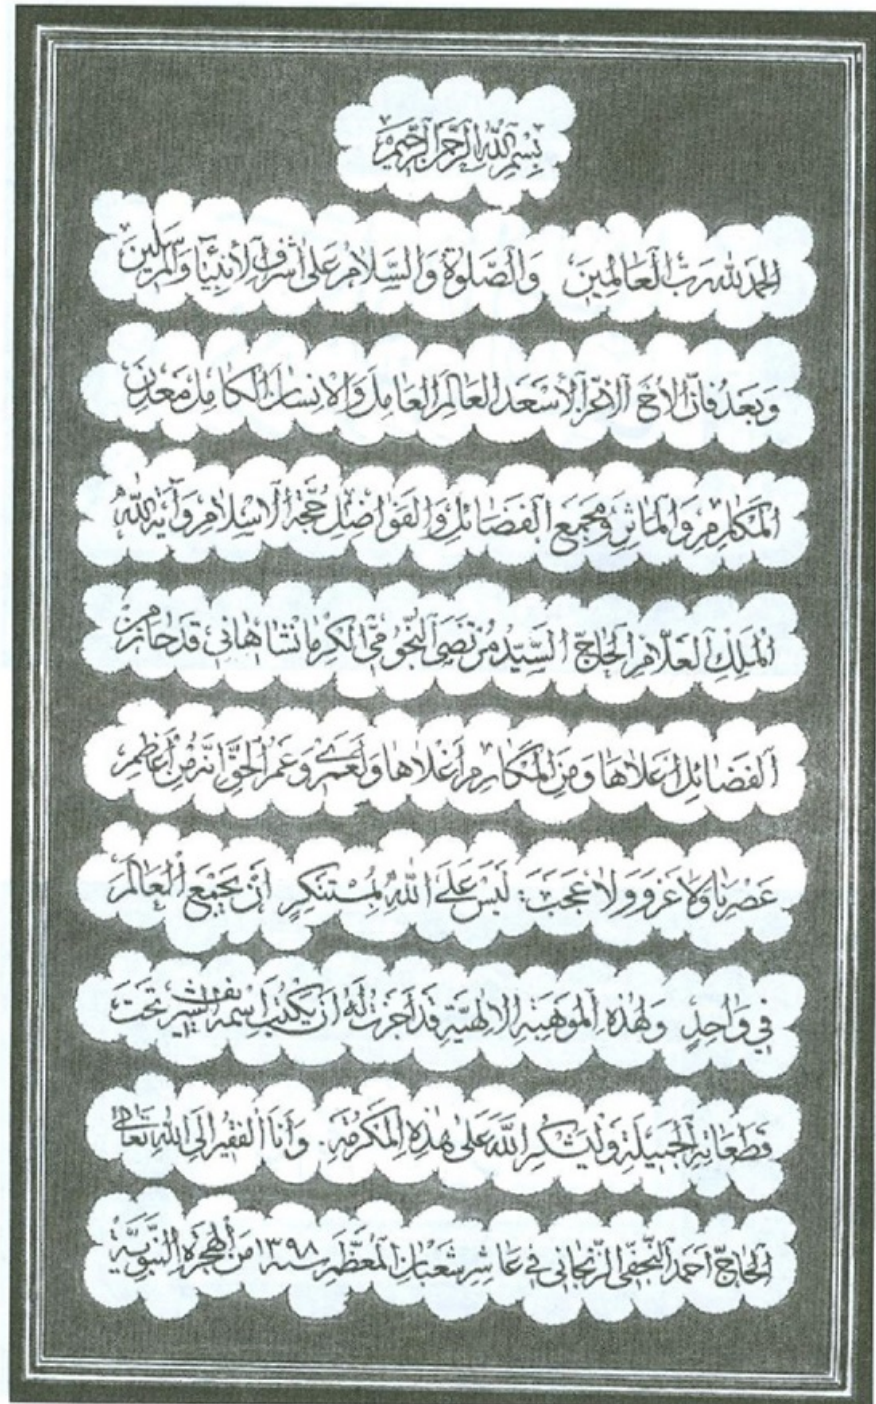 بِسْمِ اللهِ الرَّحْمنِ الرَّحِيمِ
الحَمدُ لله رَبِّ العَالمِينَ وَالصَّلوةُ وَالسَّلامُ عَلى اشرَفِ الأنبِيآءِ وَالمرسَلينَ
وَبَعدُ فانَّ الأخَ الاعزَّ الأسعَد العَالِمَ العَامِلَ وَالانسانَ الكامِلَ مَعدِنَ
المَكارِمِ وَالمآثِرِ وَمجمَعَ الفَضائلِ وَالفَواضِلِ حُجّةَ الاسلامِ وَآيَةَ اللهِ
المَلِكِ العَلّامِ الحَاجّ السَّيِّد مُرتَضى النّجُومي الكِرمانشاهاني قَد حَازَ مِنَ
الفَضائِلِ اعلاها وَمِنَ المَكارِمِ اغلاها وَلَعَمرى وَعَمرُ الحَقِّ انّه مِن اعَاظِمِ
عَصرِنا وَلا غَروَ وَلا عَجَبَ: لَيسَ عَلَى اللهِ بِمُستَنكِرٍ انْ يَجمَعَ العَالَمَ
في وَاحِدٍ وَلِهذِهِ المَوهَبَةِ الالهِيّةِ قَد اجَزتُ لَهُ ان يَكتُبَ اسمَه الشّريف تَحتَ
قِطَعَاتِهِ الجَميلَةِ وَليَشكُرِ اللهَ عَلى هذِهِ المَكرُمَةِ. وَانَا الفَقيرُ الَى اللهِ تَعَالى
الحَاجّ احمَد النّجَفي الزّنجاني في عَاشِرِ شَعبان المعظّم سنه ١٣٩٨ مِن الهِجرَةِ النّبَوِيّةِ